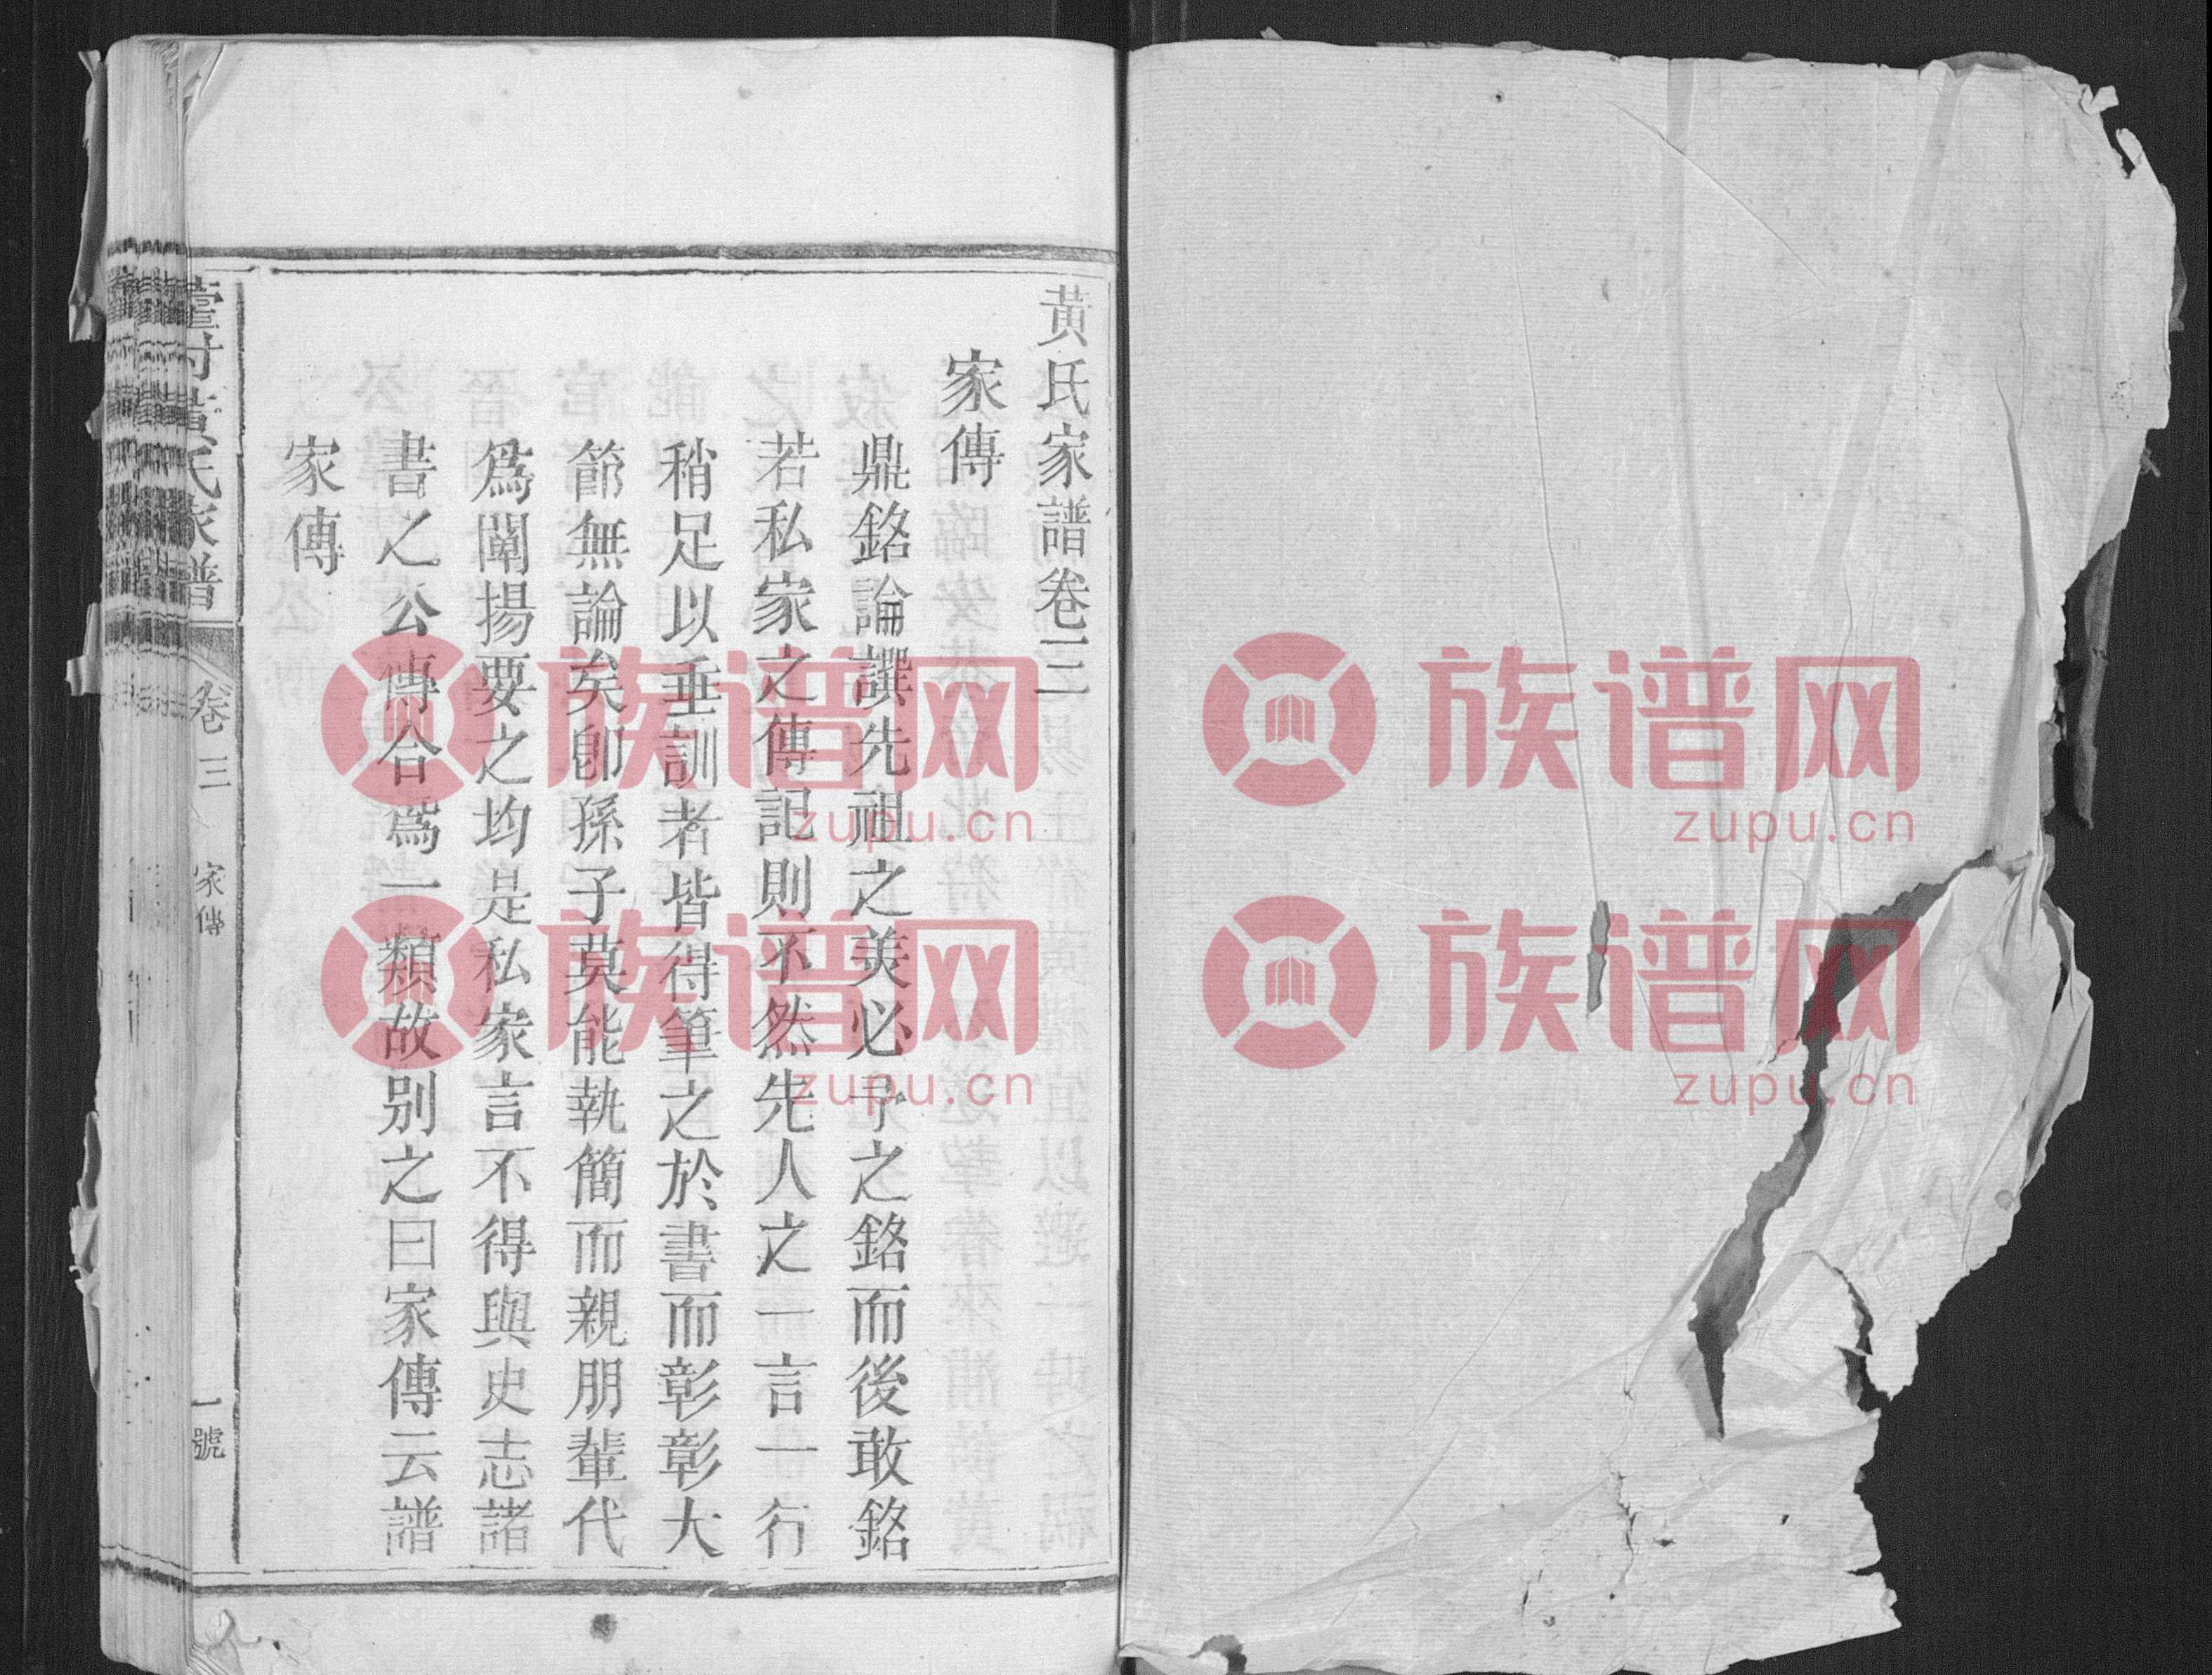 黃氏家譜卷三
家傳
鼎銘論譔先祖之美必予之銘而後敢銘
若私家之傳記則不然先人之一言一行
稍足以垂訓者皆得筆之於書而彰彰大
節無論矣卽孫子莫能執簡而親朋輩代
爲闡揚要之均是私家言不得與史志諸
書之公傳合爲一類故别之曰家傳云譜
家傳
村黃氏家譜
卷三
家傳
一號
族谱网
zupu.cn
族谱网
zupu.cn
族谱网
zupu.cn
族谱网
zupu.cn